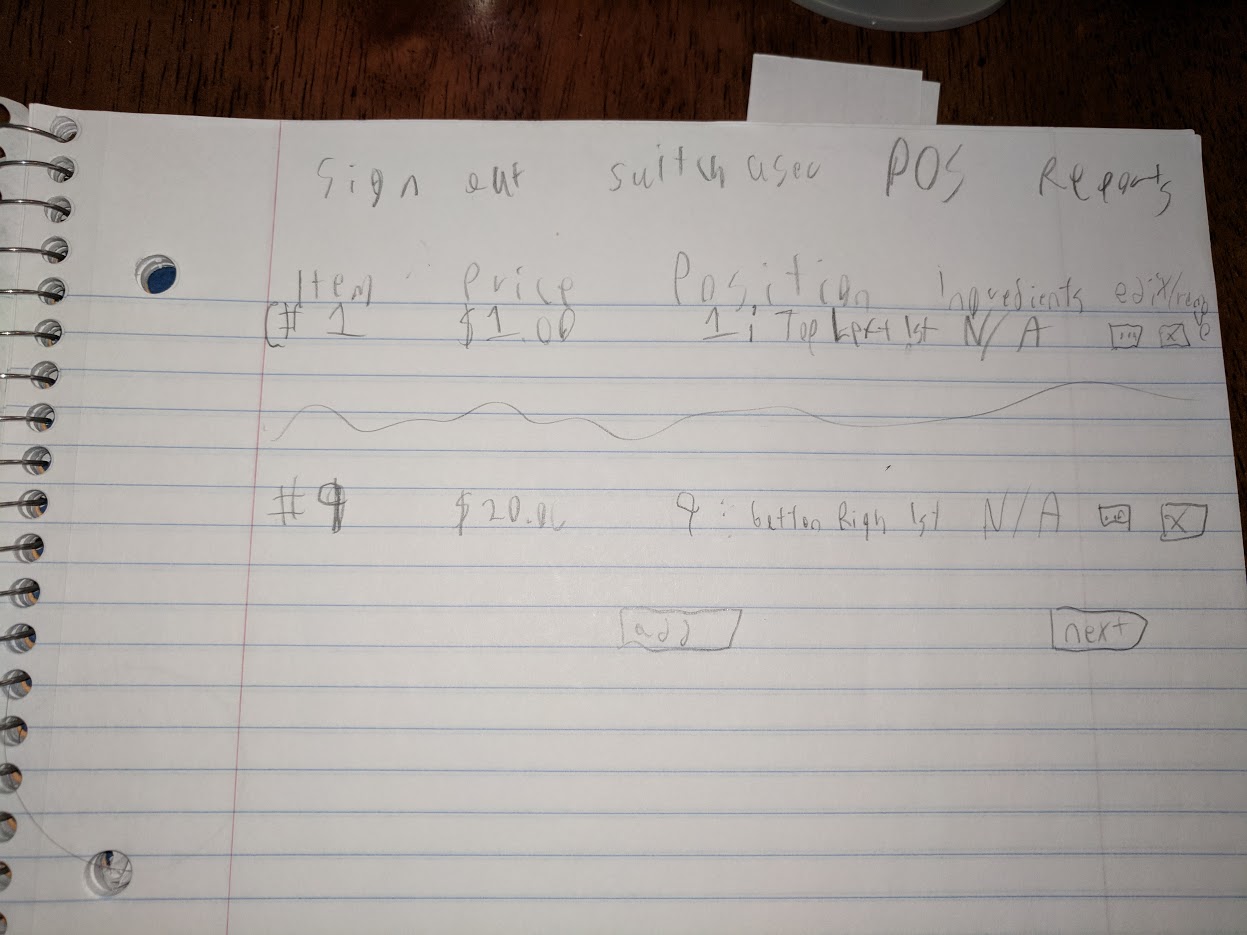 Sign out switch user POS Reports
Item Price Position Ingredients edit/
#1 $1.00 1: Top Left 1st N/A ... X
#9 $20.00 9: button Righ 1st N/A ... X
add next